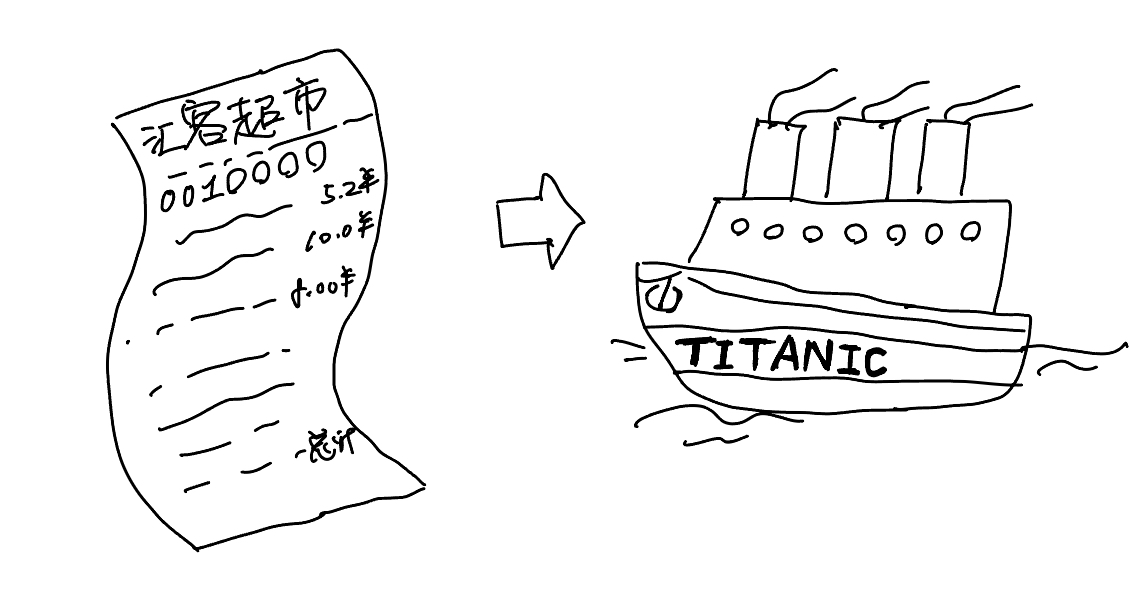 汇客超市
0010000
5.2¥
60.0¥
8.00¥
总计
TITANIC